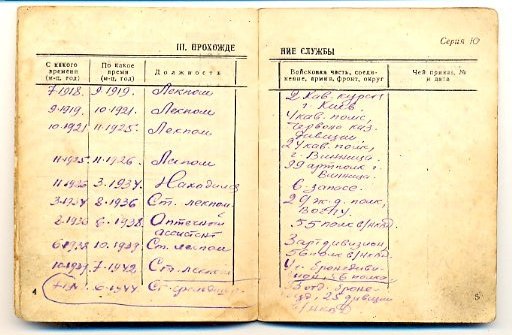 III. ПРОХОЖДЕ
С какого времени (м-ц, год)
По какое время (м-ц, год)
Должность
7-1918. 9-1919. Лекпом
9-1919. 10-1921. Лекпом
10-1921 11-1925. Лекпом
11-1925. 11-1926. Лекпом
11-1925 3-1934. Находился
3-1934 8-1936 Ст. лекпом
8-1936 6-1938. Аптечный
ассистент
6-1938 10-1939 Ст. лекпом
10-1939 7-1942. Ст. лекпом
6-1944
4
Серия Ю
НИЕ СЛУЖБЫ
Войсковая часть, соединение, армия, фронт, округ
Чей приказ, № и дата
2 Кав. курсы
г. Киев.
кав. полк,
Червоно каз.
дивизии,
2 кав. полк,
г. Винница.
29 артполк г.
Винница.
В запасе.
29 ж.-д. полк,
ВОХПУ
55 полк в/нквд.
Зартдивизион,
56 полк в/нквд.
Уч. бронедиви-
зион, 56 полка
25 дивизии
в/нквд
5